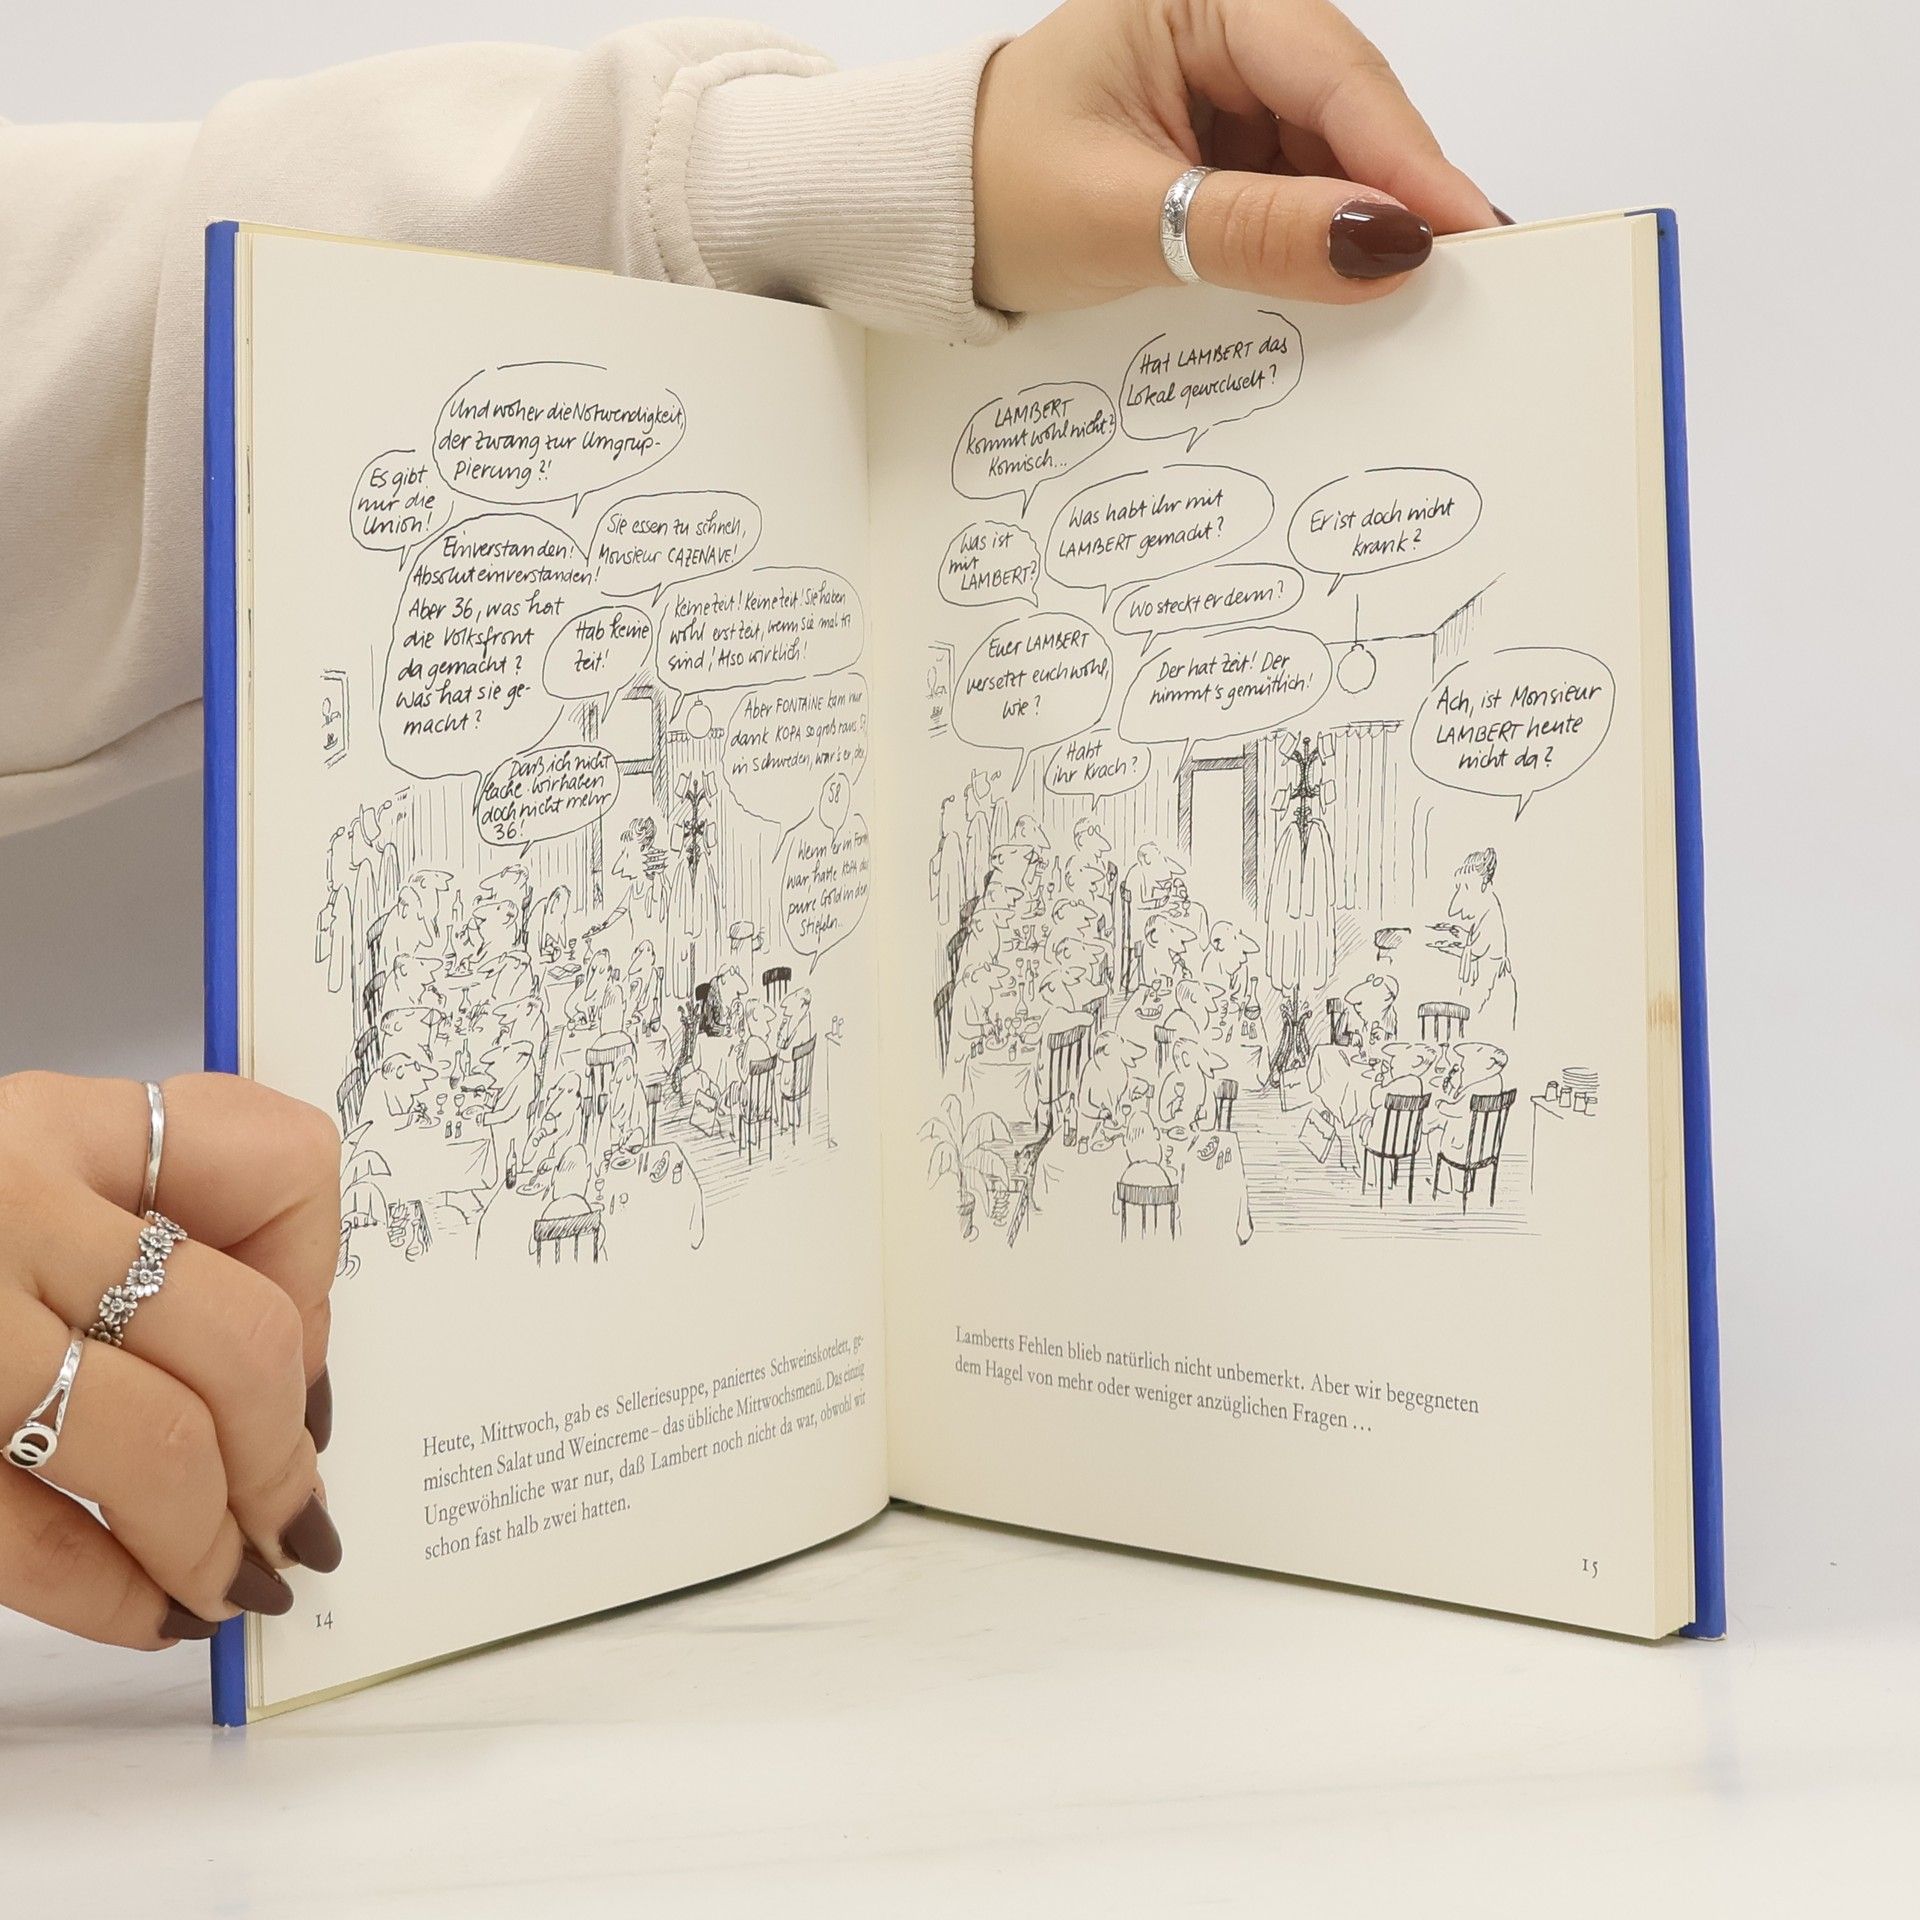 Und woher die Notwendigkeit,
der Zwang zur Umgrup-
pierung?!
Es gibt
nur die
Union!
Einverstanden!
Absolut einverstanden!
Aber 36, was hat
die Volksfront
da gemacht?
Was hat sie ge-
macht?
Sie essen zu schnell,
Monsieur CAZENAVE!
Hab keine
Zeit!
Keine Zeit! Keine Zeit! Sie haben
wohl erst Zeit, wenn sie mal tot
sind! Also wirklich!
Daß ich nicht
lache. Wir haben
doch nicht mehr
36!
Aber FONTAINE kam nur
dank KOPA so groß raus.
in Schweden, war's er der
58
Wenn er in Form
war, hatte KOPA das
pure Gold in den
Stiefeln..
Heute, Mittwoch, gab es Selleriesuppe, paniertes Schweinskotelett, ge-
mischten Salat und Weincreme – das übliche Mittwochsmenü. Das einzig
Ungewöhnliche war nur, daß Lambert noch nicht da war, obwohl wir
schon fast halb zwei hatten.
14
Hat LAMBERT das
Lokal gewechselt?
LAMBERT
kommt wohl nicht?
Komisch...
Was habt ihr mit
LAMBERT gemacht?
Er ist doch nicht
krank?
Was ist
mit
LAMBERT?
Wo steckt er denn?
Euer LAMBERT
versetzt euch wohl,
wie?
Der hat Zeit! Der
nimmt's gemütlich!
Habt
ihr Krach?
Ach, ist Monsieur
LAMBERT heute
nicht da?
Lamberts Fehlen blieb natürlich nicht unbemerkt. Aber wir begegneten
dem Hagel von mehr oder weniger anzüglichen Fragen ...
15